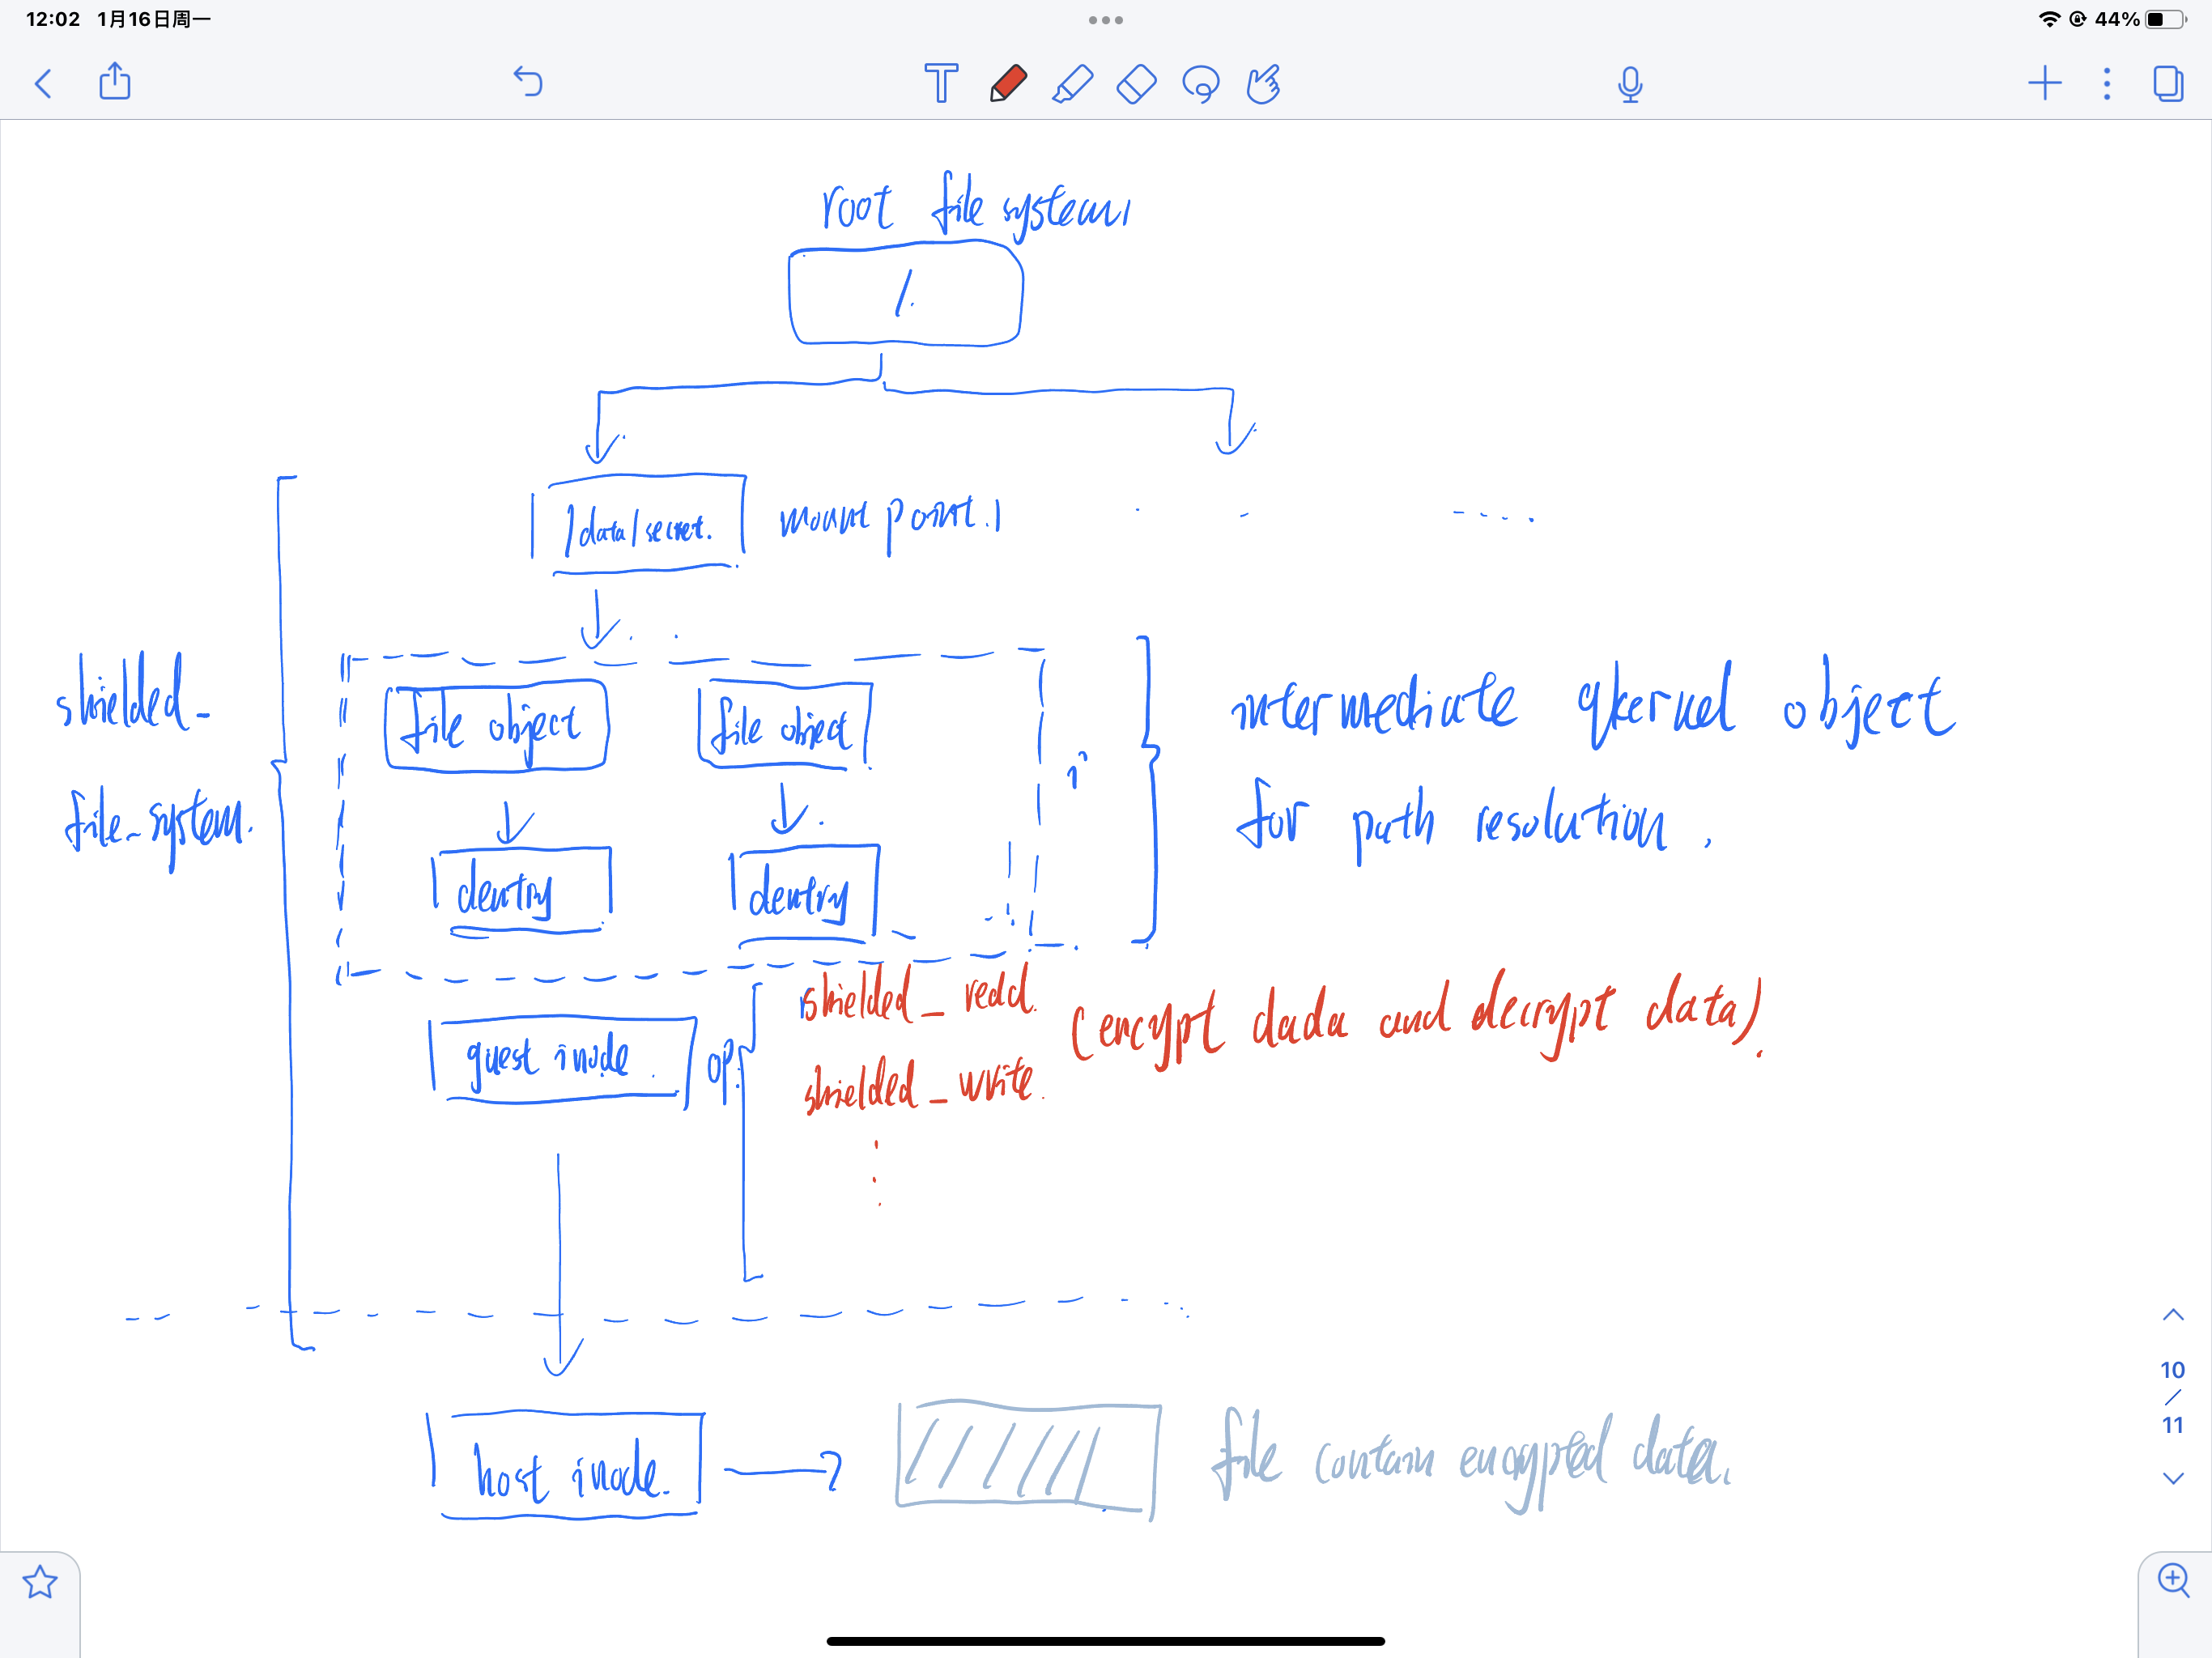 12:02 1月16日周一
44%
root file system
/
/data/secret.
mount point.
shielded_
file_system.
file object
file object
dentry
dentry
intermediate qkernel object
for path resolution.
guest inode.
op:
shielded_read.
shielded_write.
(encrypt dada and decrypt data).
host inode.
file contain encrypted data.
10
/
11